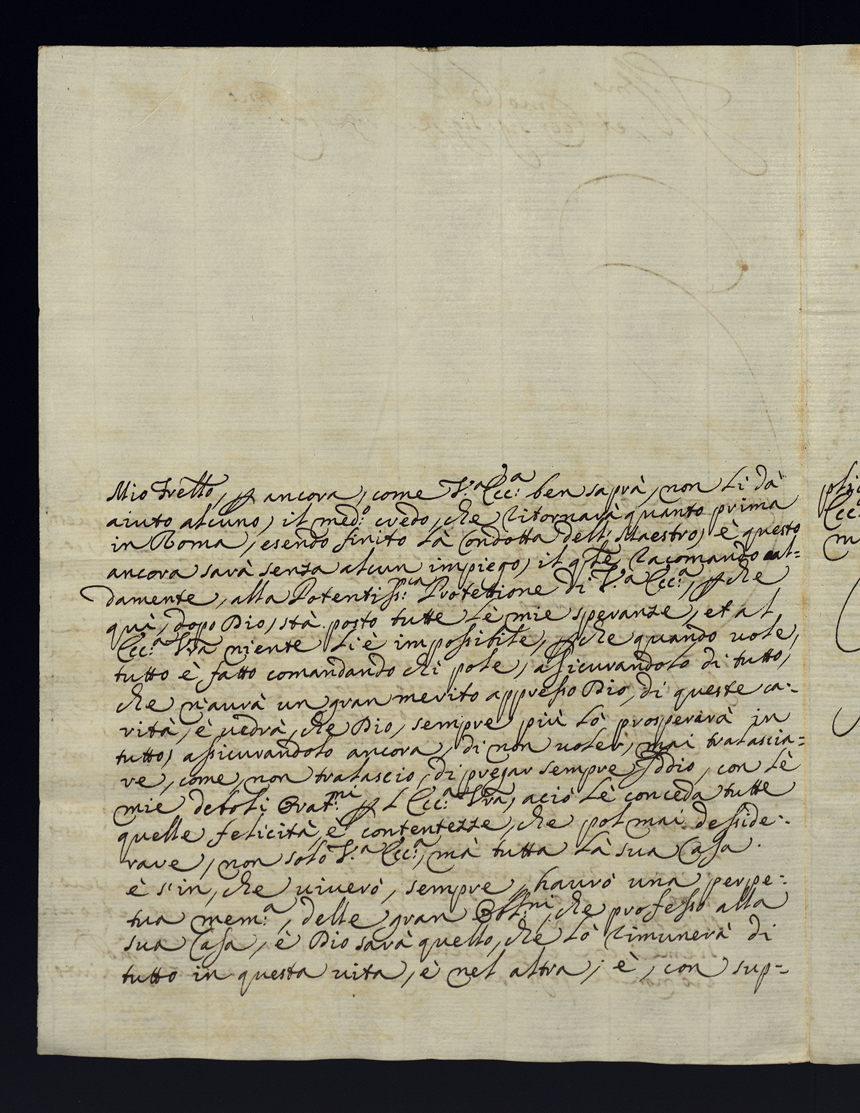 Mio Frello, p ancora, come V.a Ecc.a ben saprà, non li dà
aiuto alcuno, il med.o credo, che ritornarà quanto prima
in Roma, esendo finito là Condotta dell Maestro, è questo
ancora sarà senza alcun impiego, il q.le racomando cal=
damente, alla Potentiss.ma Protettione di V.a Ecc.a, p che
quà, dopo Dio, stà posto tutte lè mie speranze, et al
Ecc.a Vra niente li è impossibile, p che quando uole,
tutto è fatto comandando chi pole, assicurandolo di tutto,
che n'aurà un gran merito appresso Dio, di queste ca=
rità, è uedrà, che Dio, sempre più lò prosperarà in
tutto, assicurandolo ancora, di non uoler, mai tralascia=
re, come, non tralascio, di pregar sempre Iddio, con lè
mie deboli Orat.ni p l Ecc.a Vra, aciò lè conceda tutte
quelle felicità, è contentezze, che pol mai desside=
rare, non solo V.a Ecc.a, mà tutta là sua Casa.
è s'in, che uiuerò, sempre, haurò una perpe=
tua mem.a, delle gran Obb.ni, che professo alla
sua Casa, è Dio sarà quello, che lò rimunerà di
tutto in questa uita, è nel altra; è, con sup=